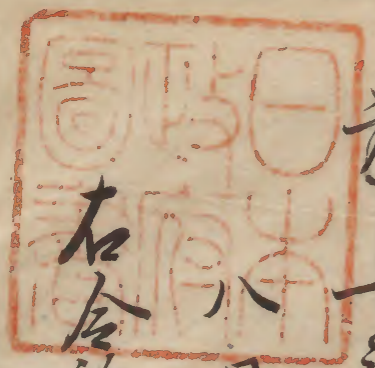 日本
政府
圖書
一
八
右令